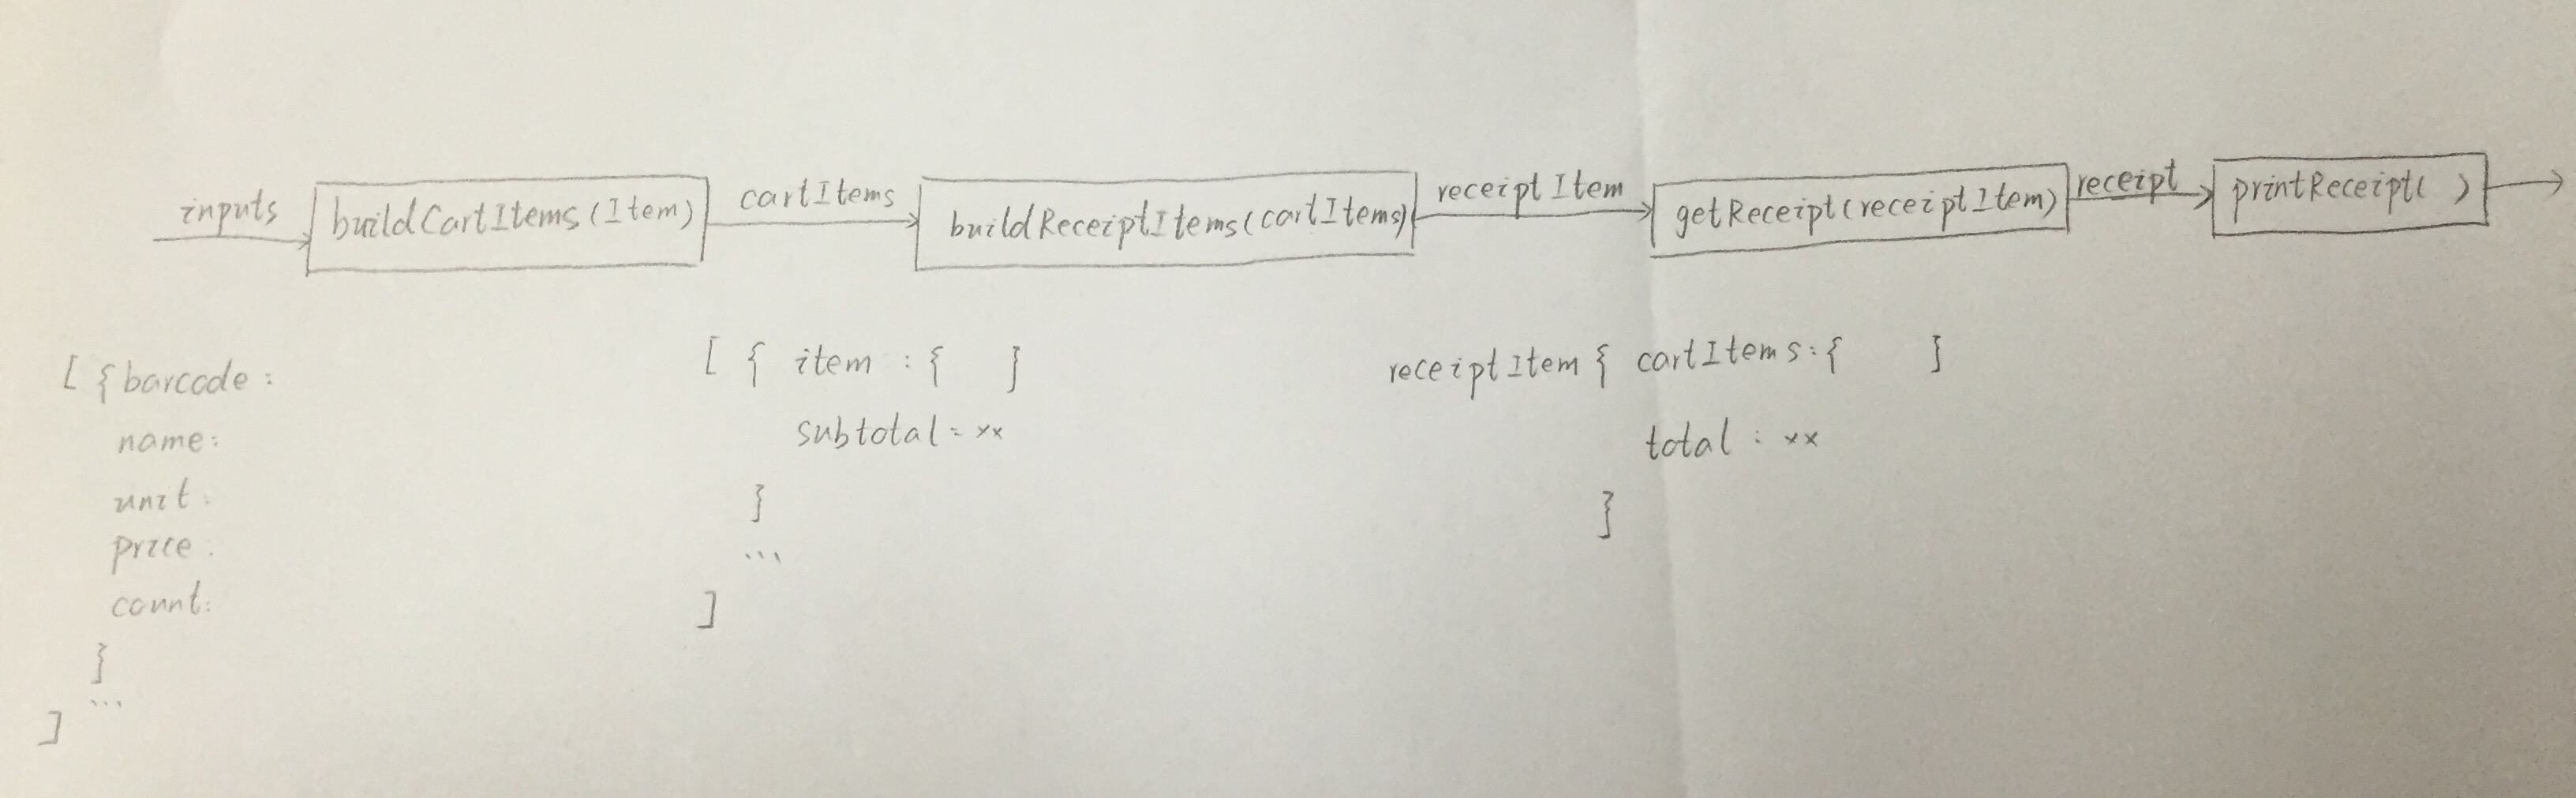 inputs
buildCartItems(Item)
cartItems
buildReceiptItems(cartItems)
receiptItem
getReceipt(receiptItem)
receipt
printReceipt( )
[ { barcode :
name:
unit:
price:
count:
}
...
]
[ { item : { }
subtotal: xx
}
...
]
receiptItem { cartItems: { }
total : xx
}